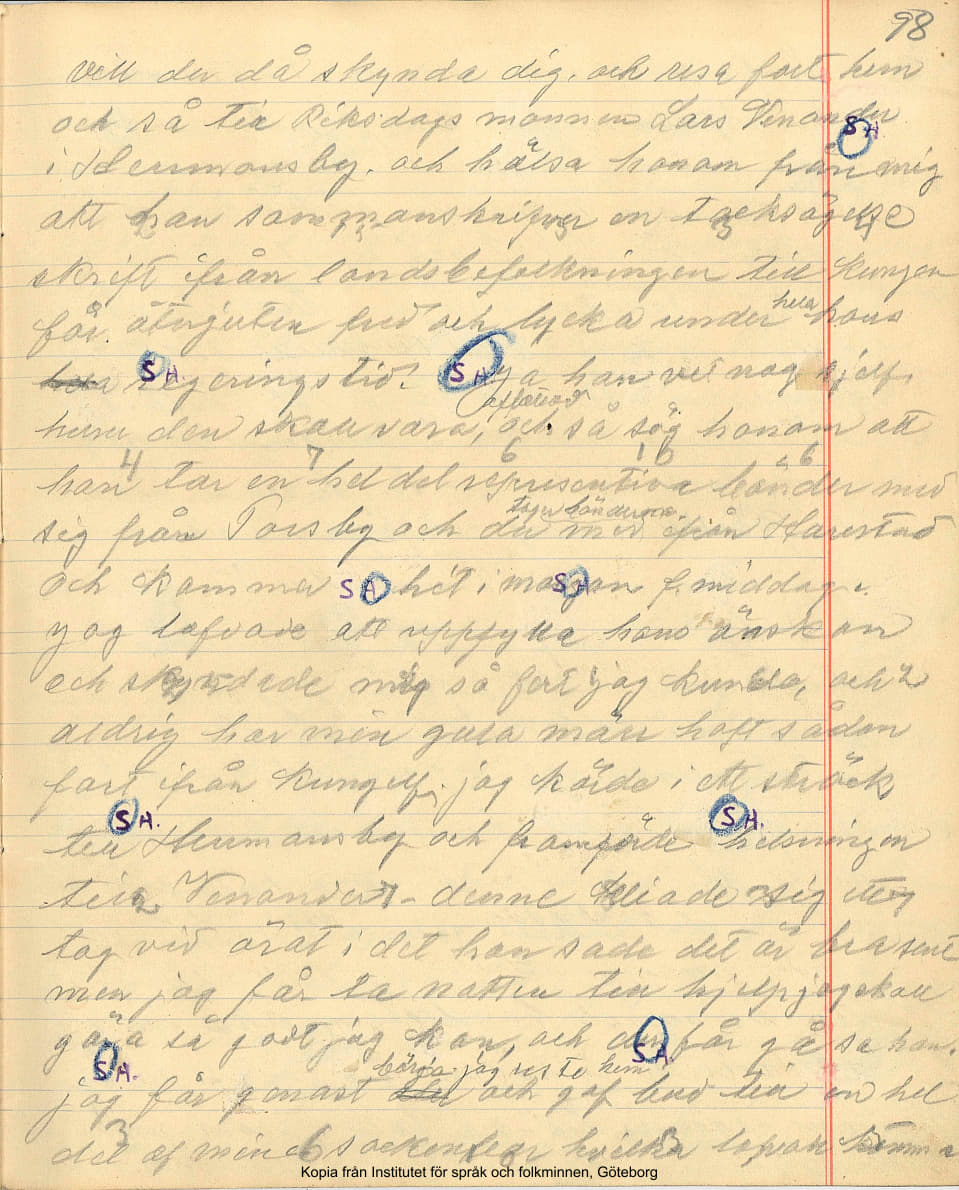 98
vill du då skynda dig. och resa fort hem
och så till Riksdags mannen Lars Venander
S H
i Hermansby. och hälsa honom från mig
att han sammanskrifver en tacksägelse
skrift ifrån landsbefolkningen till Kungen
för återgifven fred och lycka under hela hans
S H. regeringstid. S H Ja han vet nog sjelf.
huru den skall vara, och så säg honom att
4 7 6 10 6
han tar en hel del representiva bönder med
sig från Torsby och du tager bönderna med ifrån Harestad
och kommer S A hit i morgon S A f. middag.
jag lofvade att uppfylla hans önskan
och skyndade mig så fort jag kunde, och
aldrig har min gula märr haft sådan
fart ifrån Kungelf. jag körde i ett sträck
S H. S H.
till Hermansby och framförde helsningen
till Venander - denne kliade sig ett
tag vid örat i det han sade det är bra sent
men jag får ta natten till hjelp jag skall
göra så godt jag kan, och du får gå sa han.
S H. S A
jag får genast börja jag reste hem och gaf bud till en hel
del af mina sockenbor hvilka lofvat komma
Kopia från Institutet för språk och folkminnen, Göteborg